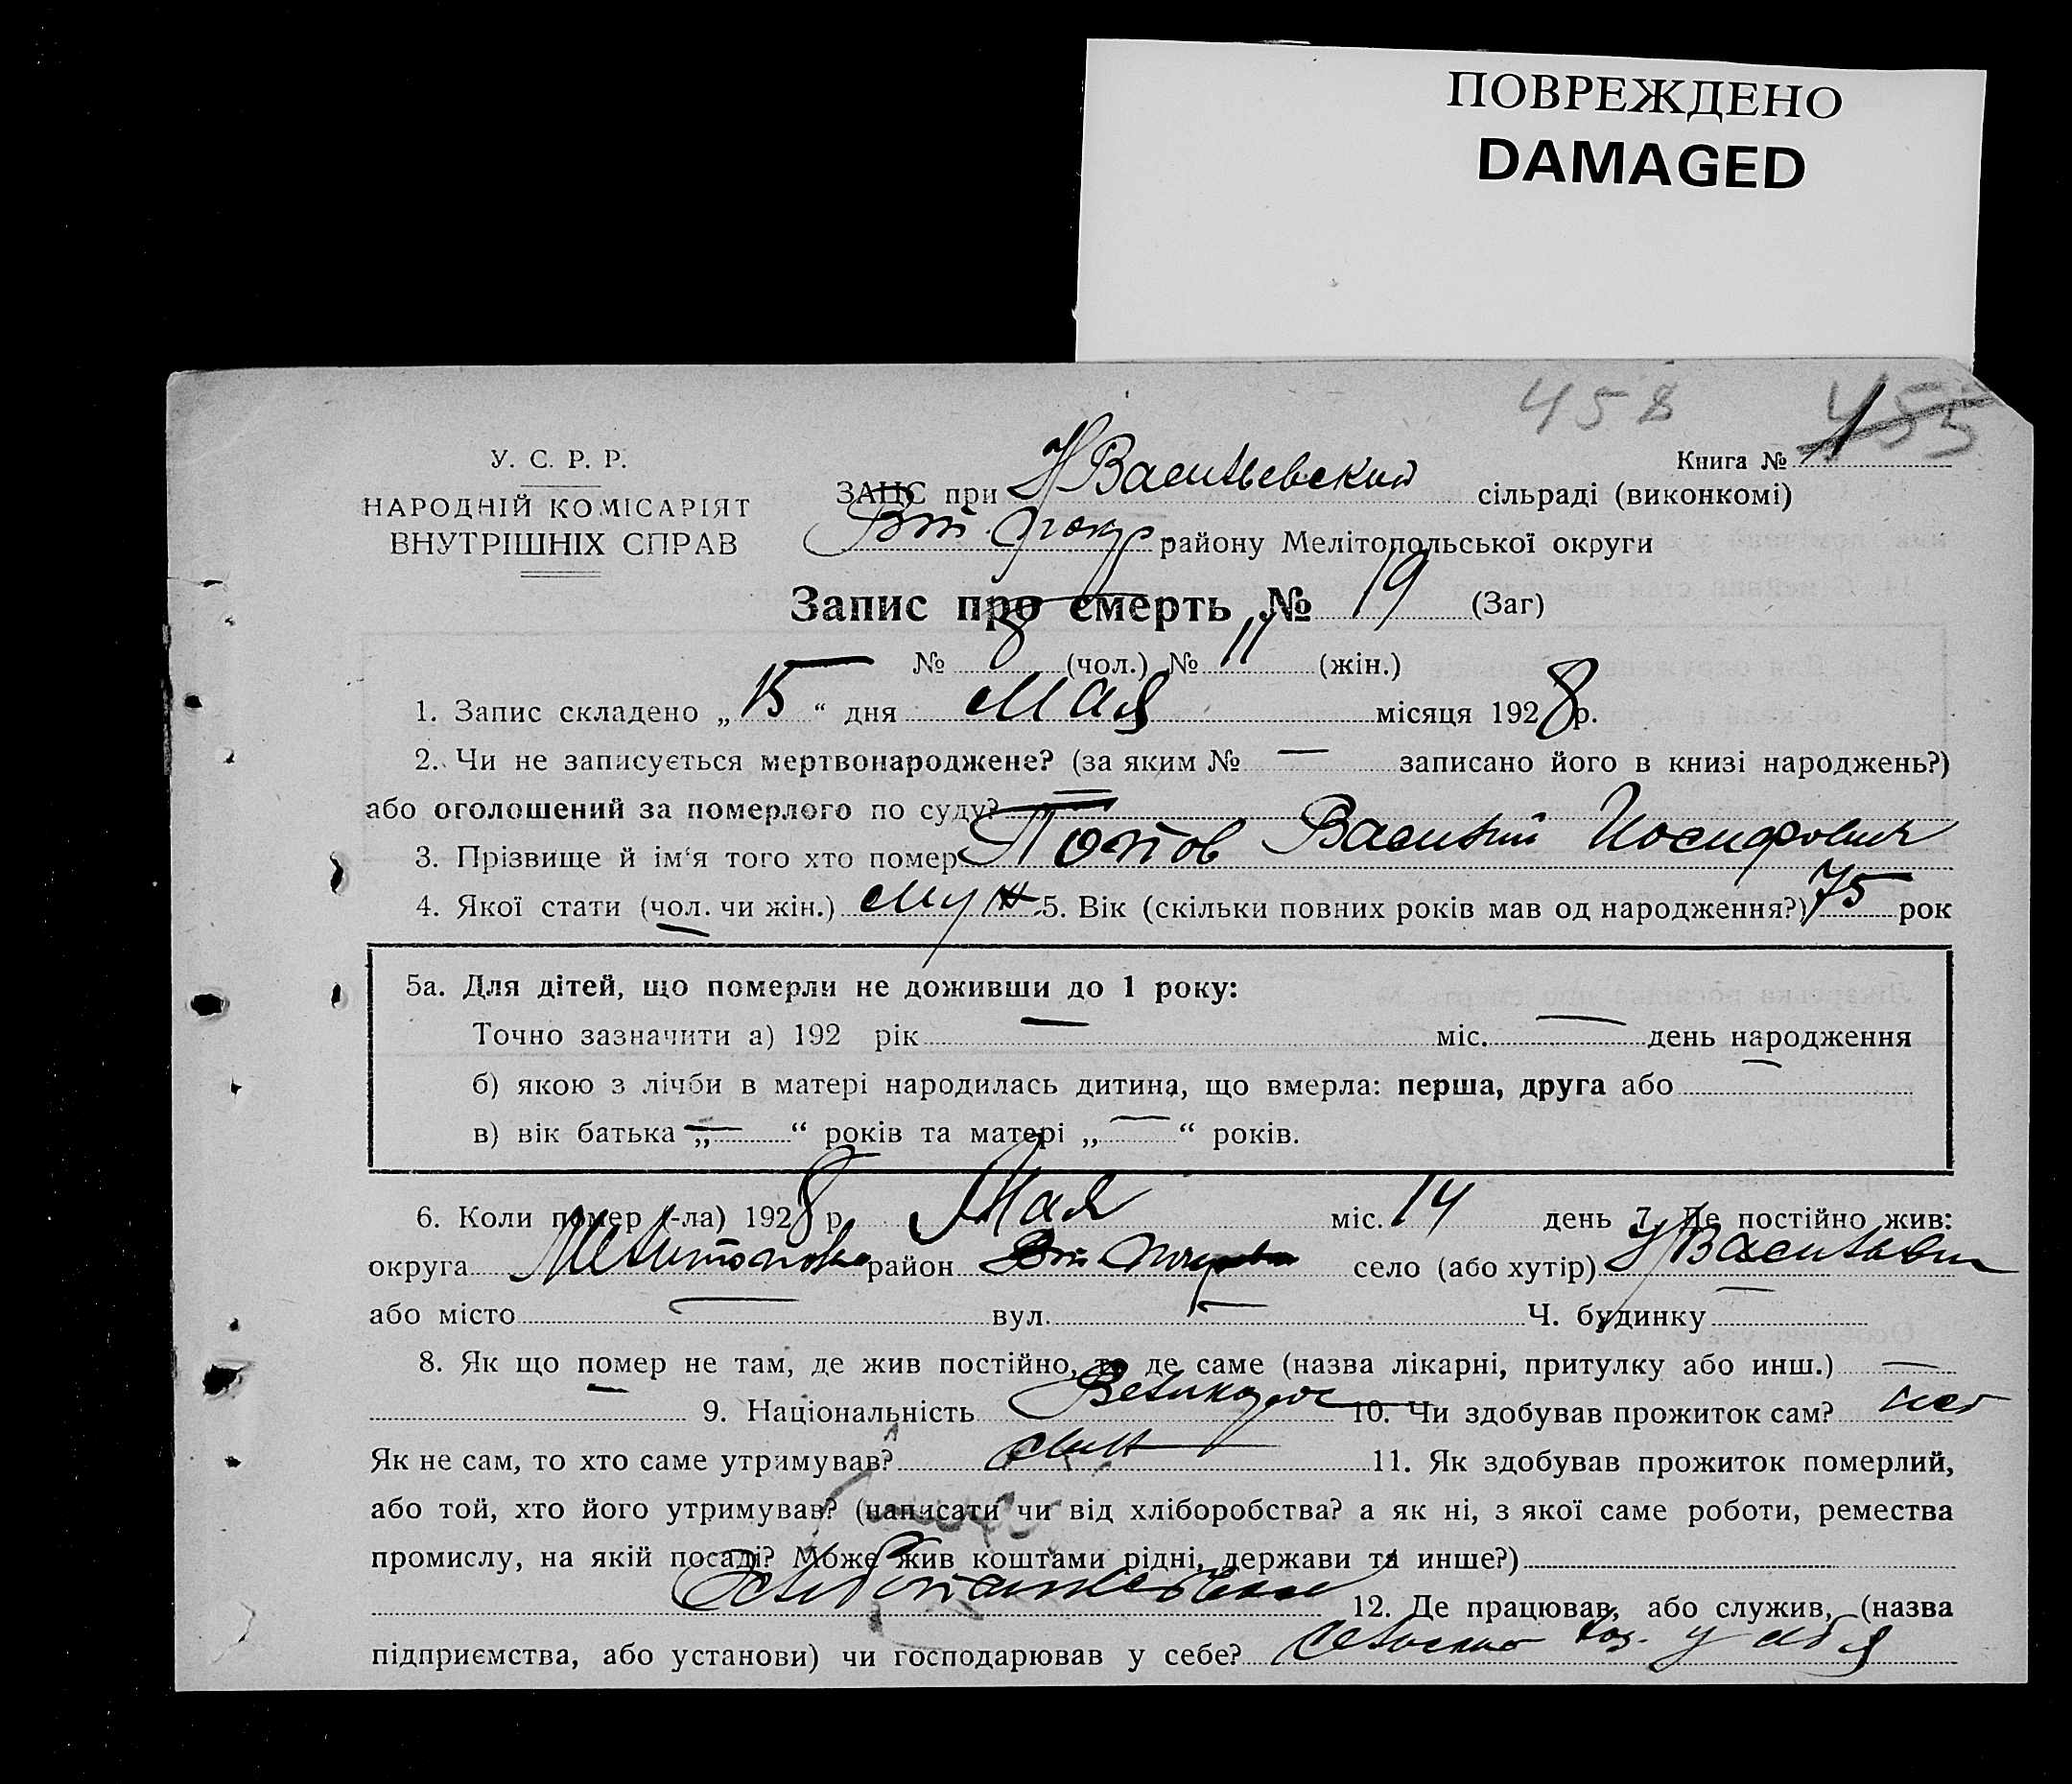 ПОВРЕЖДЕНО
DAMAGED
458 455
У. С. Р. Р.
НАРОДНІЙ КОМІСАРІЯТ
ВНУТРІШНІХ СПРАВ
Книга № 1
ЗАПС при Н Васильевский сільраді (виконкомі)
району Мелітопольської округи
Запис про смерть № 19 (Заг)
№ 8 (чол.) № 11 (жін.)
1. Запис складено „ 15 “ дня Мая місяця 1928 р.
2. Чи не записується мертвонароджене? (за яким № — записано його в книзі народжень?)
або оголошений за померлого по суду? —
3. Прізвище й ім‘я того хто помер Василий Иосифович
4. Якої стати (чол. чи жін.) муж. 5. Вік (скільки повних років мав од народження?) 75 рок
5а. Для дітей, що померли не доживши до 1 року:
Точно зазначити а) 192 рік — міс. — день народження
б) якою з лічби в матері народилась дитина, що вмерла: перша, друга або —
в) вік батька „ — “ років та матері „ — “ років.
6. Коли помер (-ла) 1928 р. Мая міс. 14 день 7. Де постійно жив:
округа район село (або хутір) Н Васильевк
або місто — вул. — Ч. будинку —
8. Як що помер не там, де жив постійно, то де саме (назва лікарні, притулку або инш.) —
— 9. Національність Великорос 10. Чи здобував прожиток сам? нет
Як не сам, то хто саме утримував? сын 11. Як здобував прожиток померлий,
або той, хто його утримував? (написати чи від хліборобства? а як ні, з якої саме роботи, ремества
промислу, на якій посаді? Може жив коштами рідні, держави та инше?)
12. Де працював, або служив, (назва
підприємства, або установи) чи господарював у себе? сельско хоз. у себя